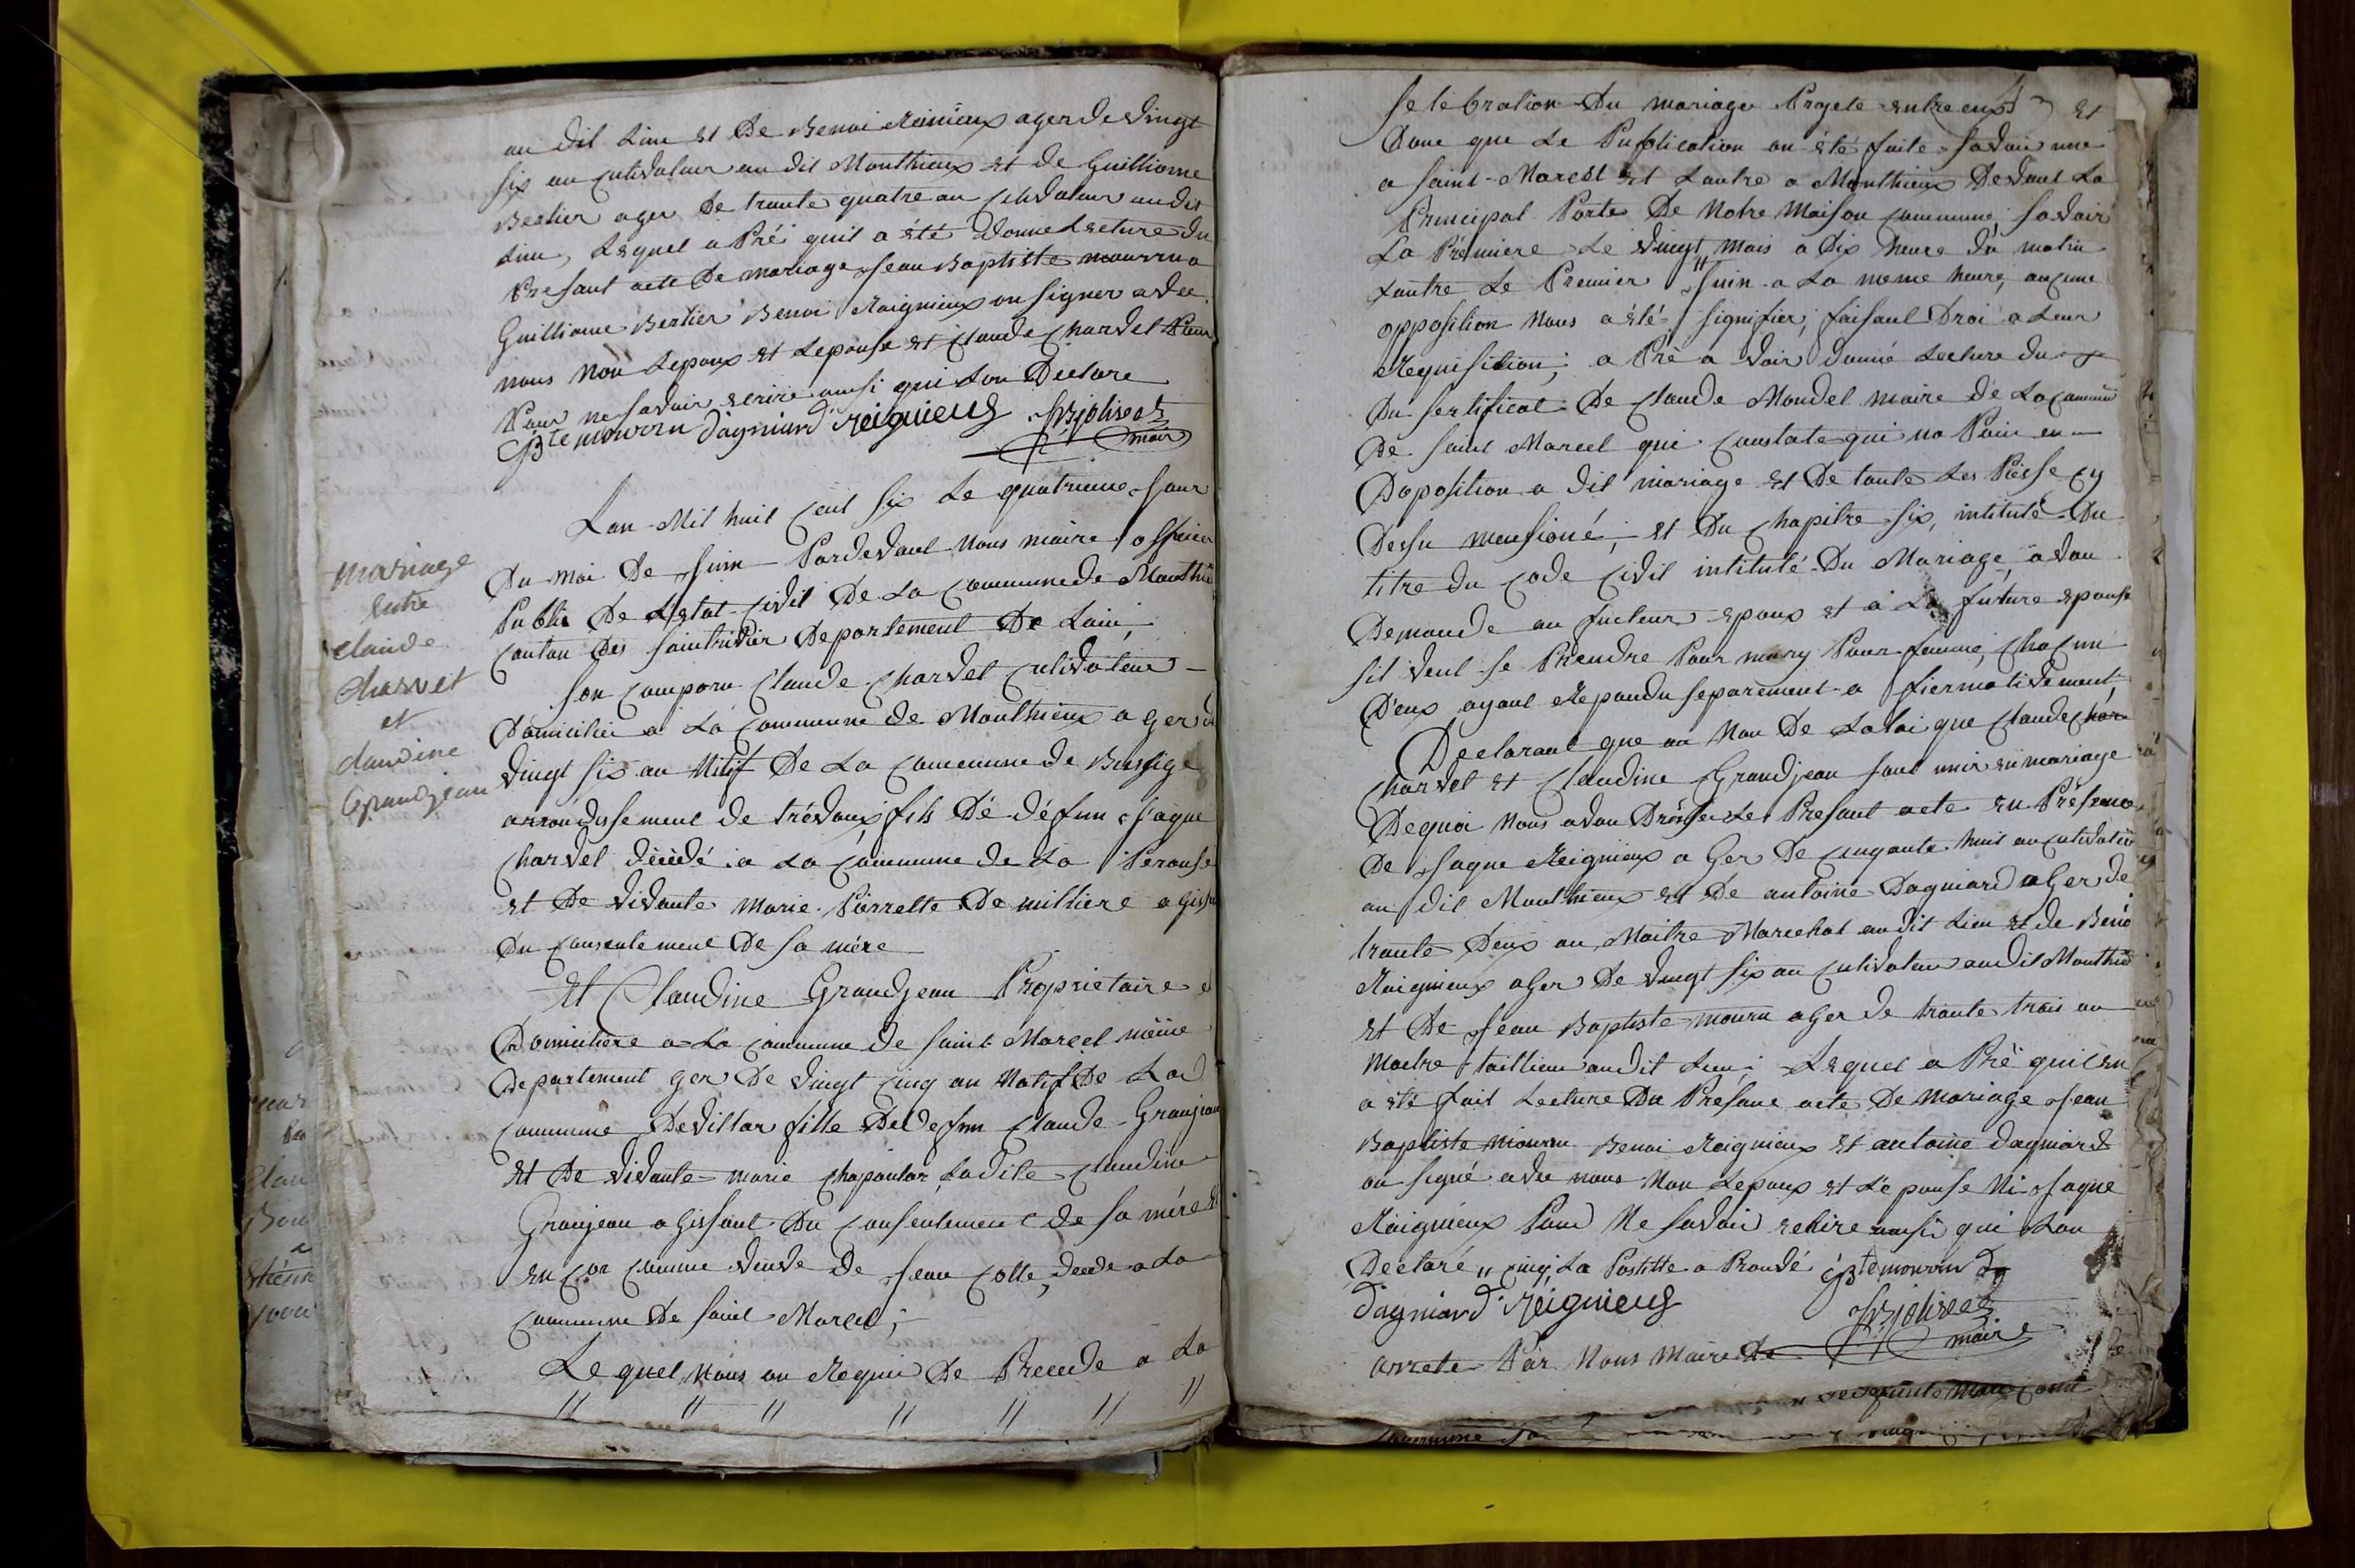 au dit Lieu et De Benoi Reinieux ager de vingt
six an cultivateur au dit Monthieux et de Guilliome
Bertier ager De trante quatre an cultivateur audit
Lieu, Lequel a Pré quil a été donne Lecture du
Presant acte De mariage Jean Baptiste mourru
Guilliome Bertier Benoi Raignieux on Signer avec
nous Non Lepoux et Lepouse et Claude Charvet
Pour ne savoir ecrire ausi qui Lon Declare
JBte mourru Dagniard reignieux
maire
Lan Mil huit Cent Six Le quatrieme Jour
Du moi De Juin Pardevant Nous maire officier
Public De Letat Civil De La Commune de Monthieu
Canton Des Saintrivier Departement De Lain,
Son Comparu Claude Charvet Cultivateur
Domicilier a La Commune de Monthieux ager de
vingt six an Nitif De La Commune de Bussige
arrondissement de trévoux fils Dé défun Jaque
Charvet décédé a La Commune de La Perouse
et De vivante Marie Pierrette De milliere agissan
Du Consentement De sa mére
mariage
Entre
claude
charvet
et
claudine
Grandjean
Et Claudine Grandjean Proprietaire
Domiciliere a La Commune De Saint Marcel même
Departement ger De vingt Cinq an Natif De La
Commune Devillar fille De Defun Claude Granjean
et De vivante marie Chapoular Ladite Claudine
Granjean agissant Du Consentement de sa mére et
en Cor Comme veuve De Jean Colle, decede a La
Commune De Saint Marcel;
Le quel Nous on Requi De Precede a La
" " " " " " "
Selebration Du mariage Progete entre eux et
Donc que Le Publication on été faite Savoir une
a Saint-Marcel et Lautre a Monthieux Devant La
Principal Porte De Notre Maison Commune, Savoir
La Prémiere Le vingt mais a Dix heure du matin
Lautre Le Premier Juin a La meme heure, aucune
opposition Nous a été Signifier, faisant Droi a Leur
Requisition; a Prè avoir donné Lecture du
Du Sertificat De Claude Mondel maire de La Commune
De Saint Marcel qui Constate qui na Poin eu
Doposition a dit mariage et De toute Les Piesse Cy
Dessu mensioné, et Du Chapitre Six, intitulé Du
titre du Code Civil intitulé Du Mariage, avon
Demande au futeur epoux et à La future epouse
sil veul se Prendre Pour mary Pour famme, Chacun
D'eux ayant Repondu separement a fiermativement,
Declarant que au Non De La loi que Claude Char
Charvet et Claudine Grandjean sont unir en mariage
Dequoi Nous avon Drésser Le Presant acte En Présence
De Jaque Reignieux a Ger De Cinqante huit an Cultivateur
au dit Monthieux et De antoine Dagniard a Ger de
trante Deux an Maitre Marechal audit Lieu et de Benoi
Raignieux a Ger De vingt six an Cultivateur audit Monthieu
et De Jean Baptiste mouru a Ger de trante trois an
Maitre tallieur audit Lieu; Lequel a Prè quil en
a été fait Lecture Du Presant acte De mariage Jean
Baptiste mourru Benoi Reignieux et antoine Dagniard
on signé avec nous Non Lepoux et Lé pouse Ni Jaque
Raignieux Pour Ne savoir ecrire ausi qui Lon
Declaré " cinq, La Postille a Prouvé JBte mourru Dg
Dagniard Reignieux
maire
arrete Par Nous Maire